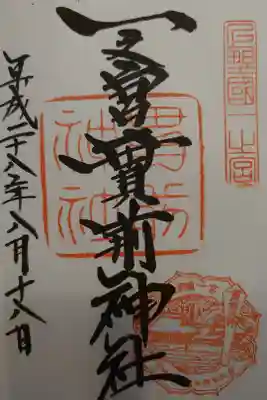 上野國一之宮
一之宮貫前神社
貫前
神社
平成二十八年八月十八日